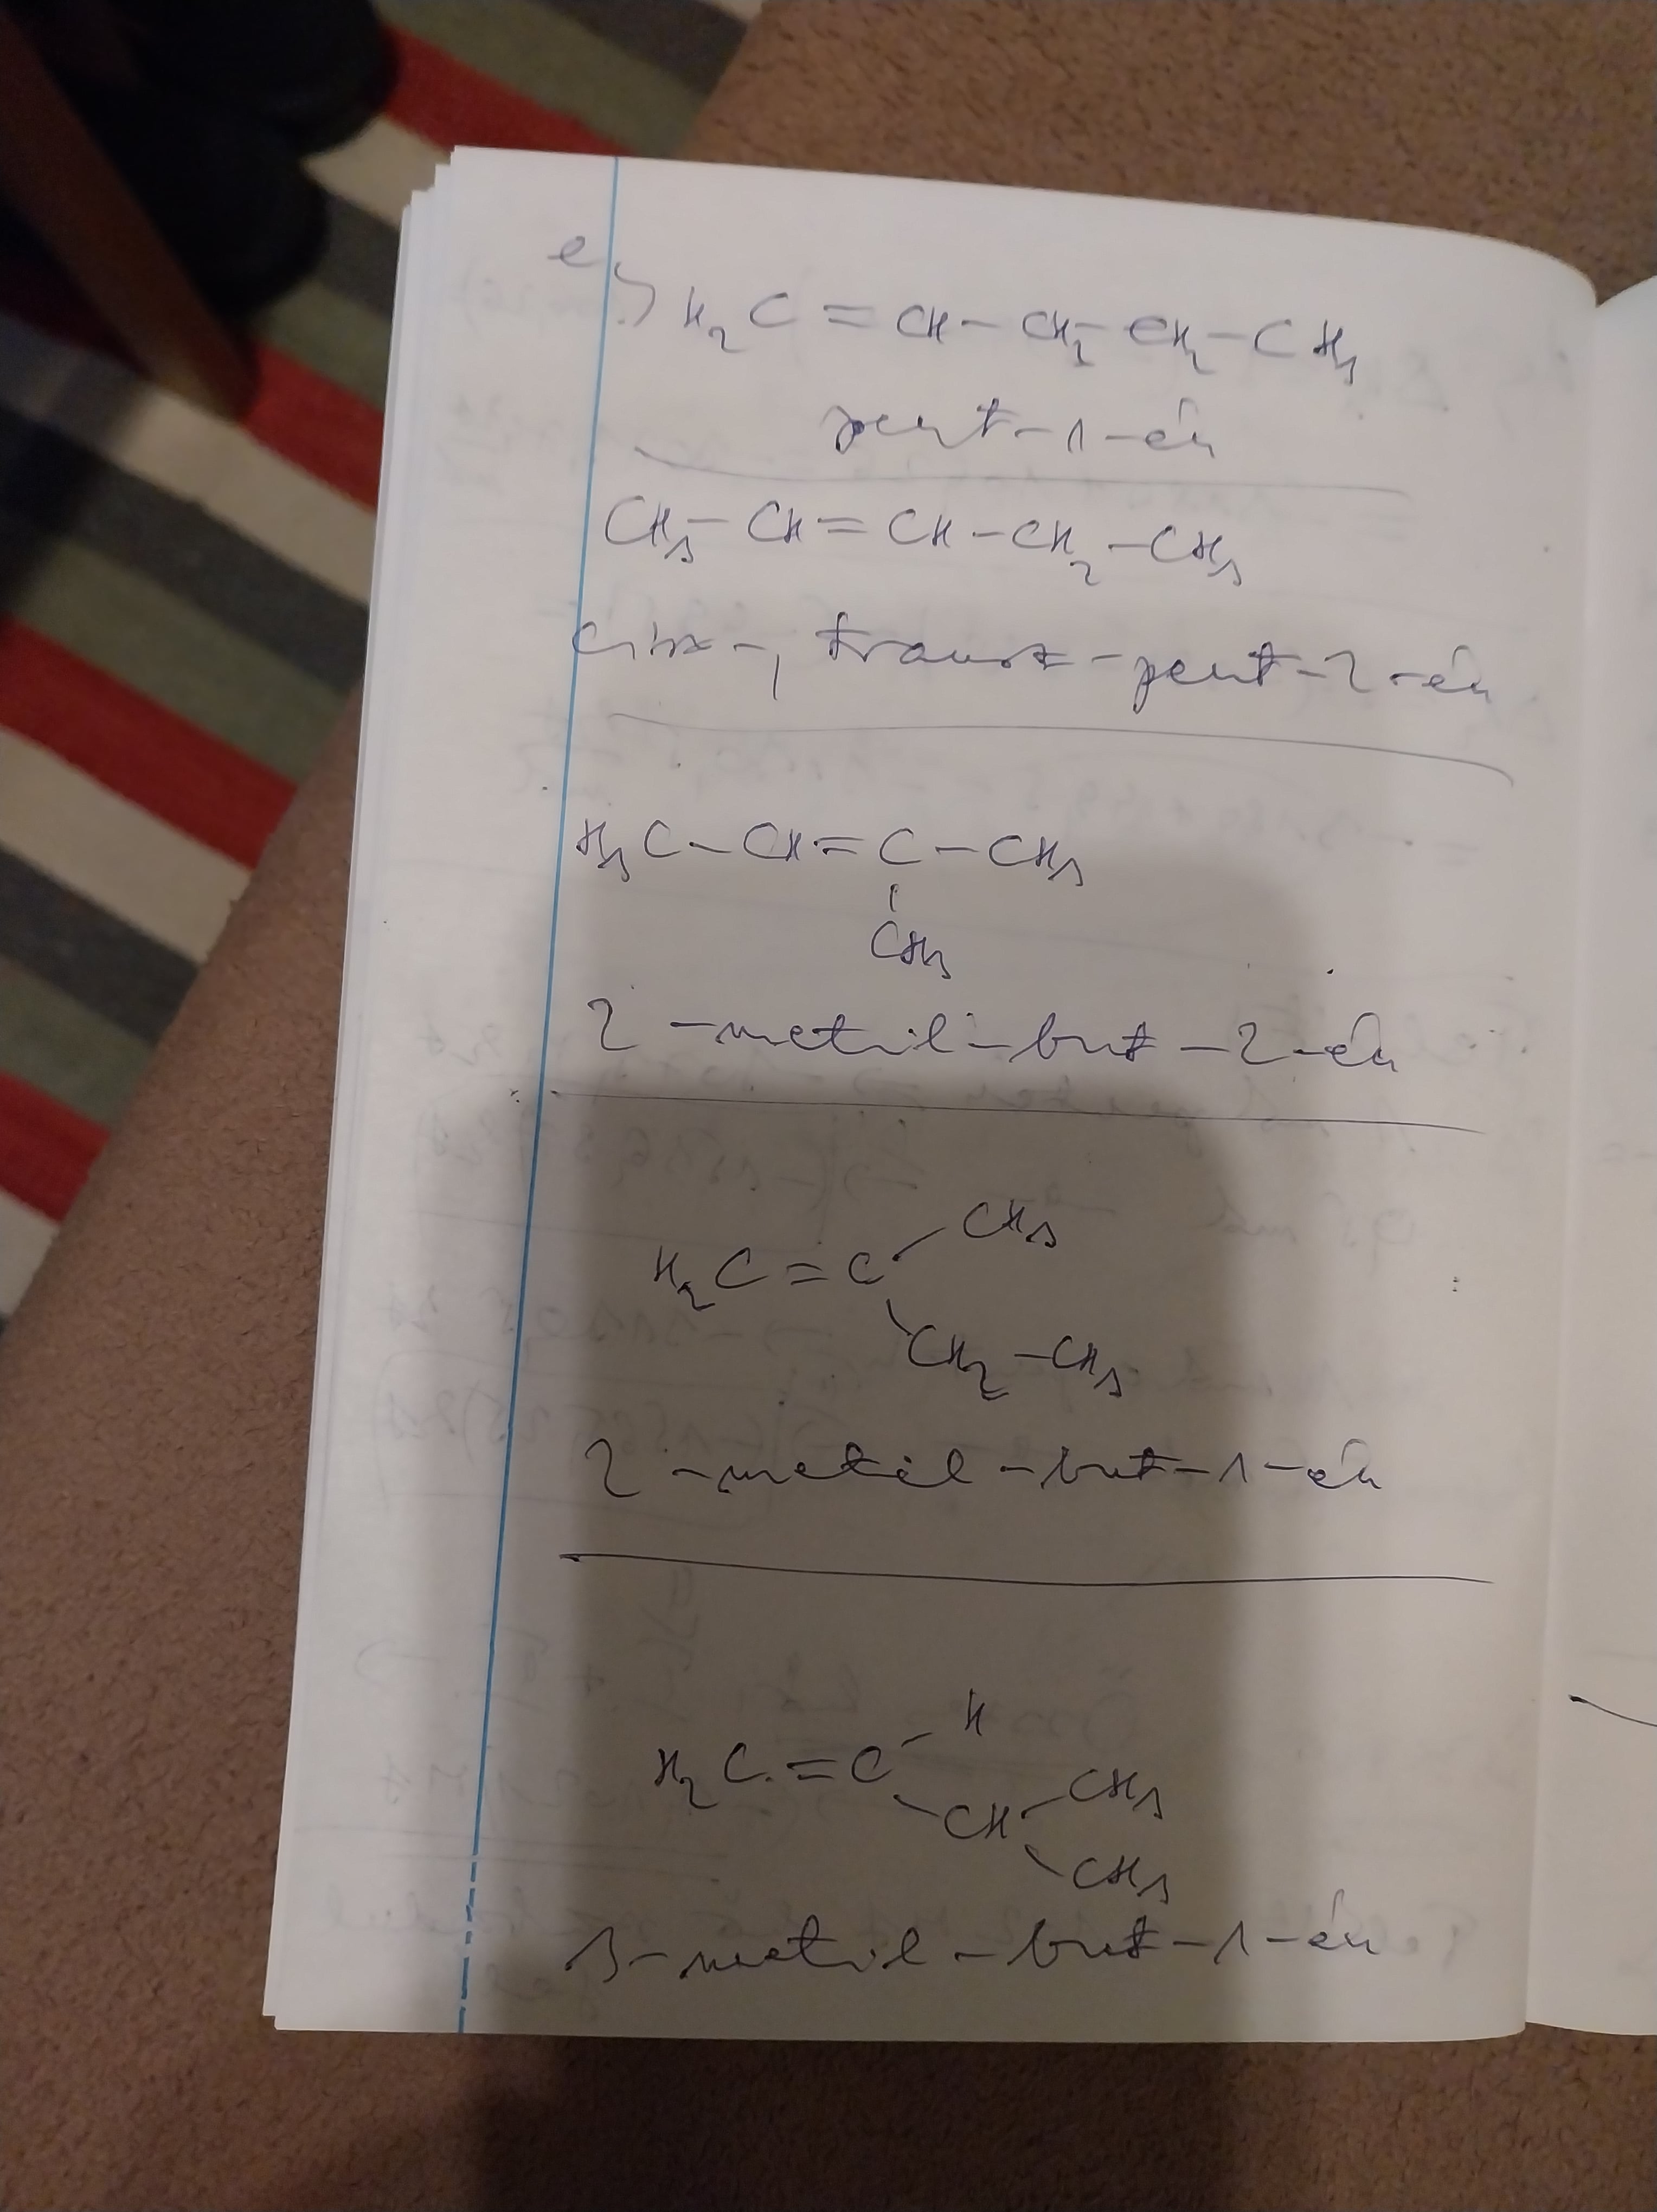 e,)
H₂C = CH – CH₂ – CH₂ – CH₃
pent-1-én
CH₃ – CH = CH – CH₂ – CH₃
cisz-, transz-pent-2-én
H₃C – CH = C – CH₃
CH₃
2-metil-but-2-én
CH₃
H₂C = C
CH₂ – CH₃
2-metil-but-1-én
H
H₂C = C
CH₃
CH
CH₃
3-metil-but-1-én